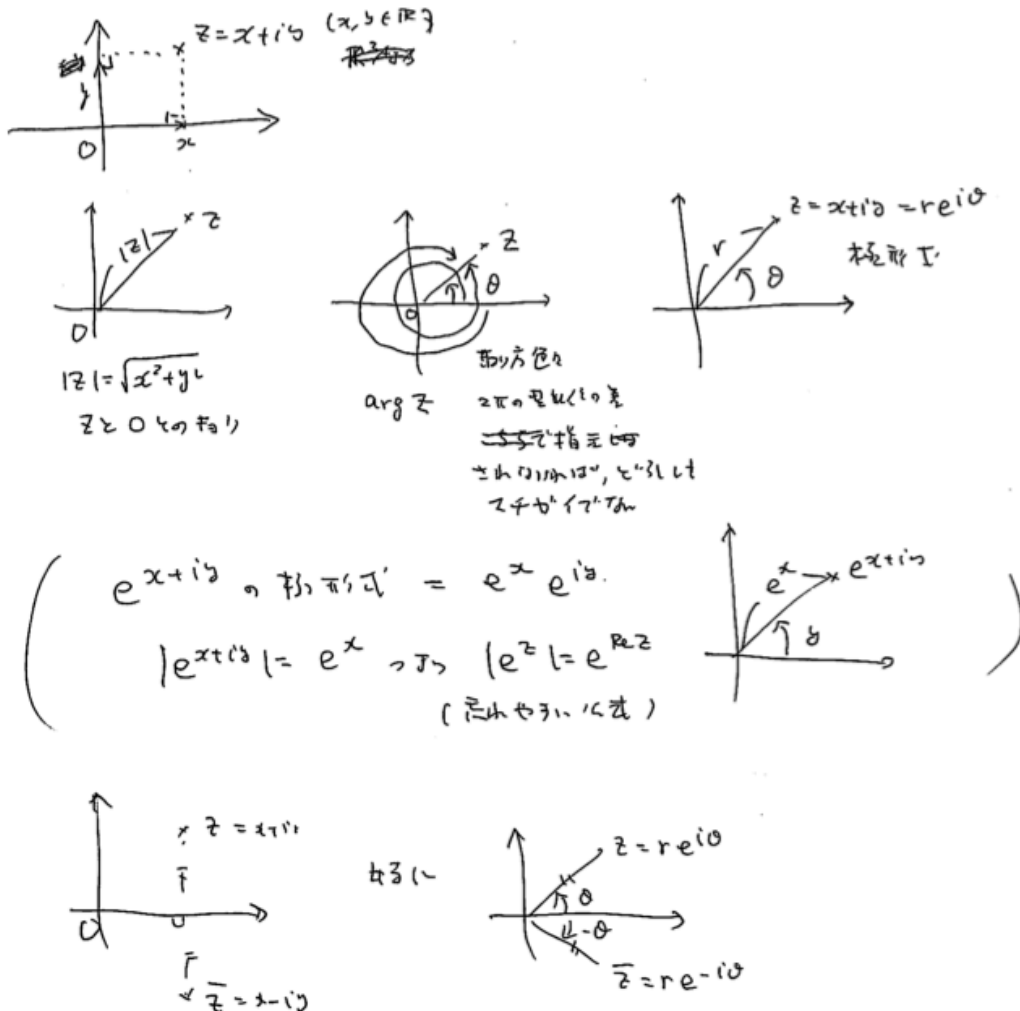 z = x+iy (x, y ∈ ℝ)
y
O
x
z
|z|
O
|z| = √x²+y²
zと0とのキョリ
z
θ
0
arg z
取り方色々
2πの整数倍の差
で指定
されなければ, どうしても
マチガイでない
z = x+iy = re^iθ
r
θ
極形式
e^x+iy の極形式 = e^x e^iy
|e^x+iy| = e^x つまり |e^z| = e^Re z
(忘れやすい公式)
e^x
e^x+iy
y
z = x+iy
O
z̄ = x-iy
z = re^iθ
θ
-θ
z̄ = re^-iθ